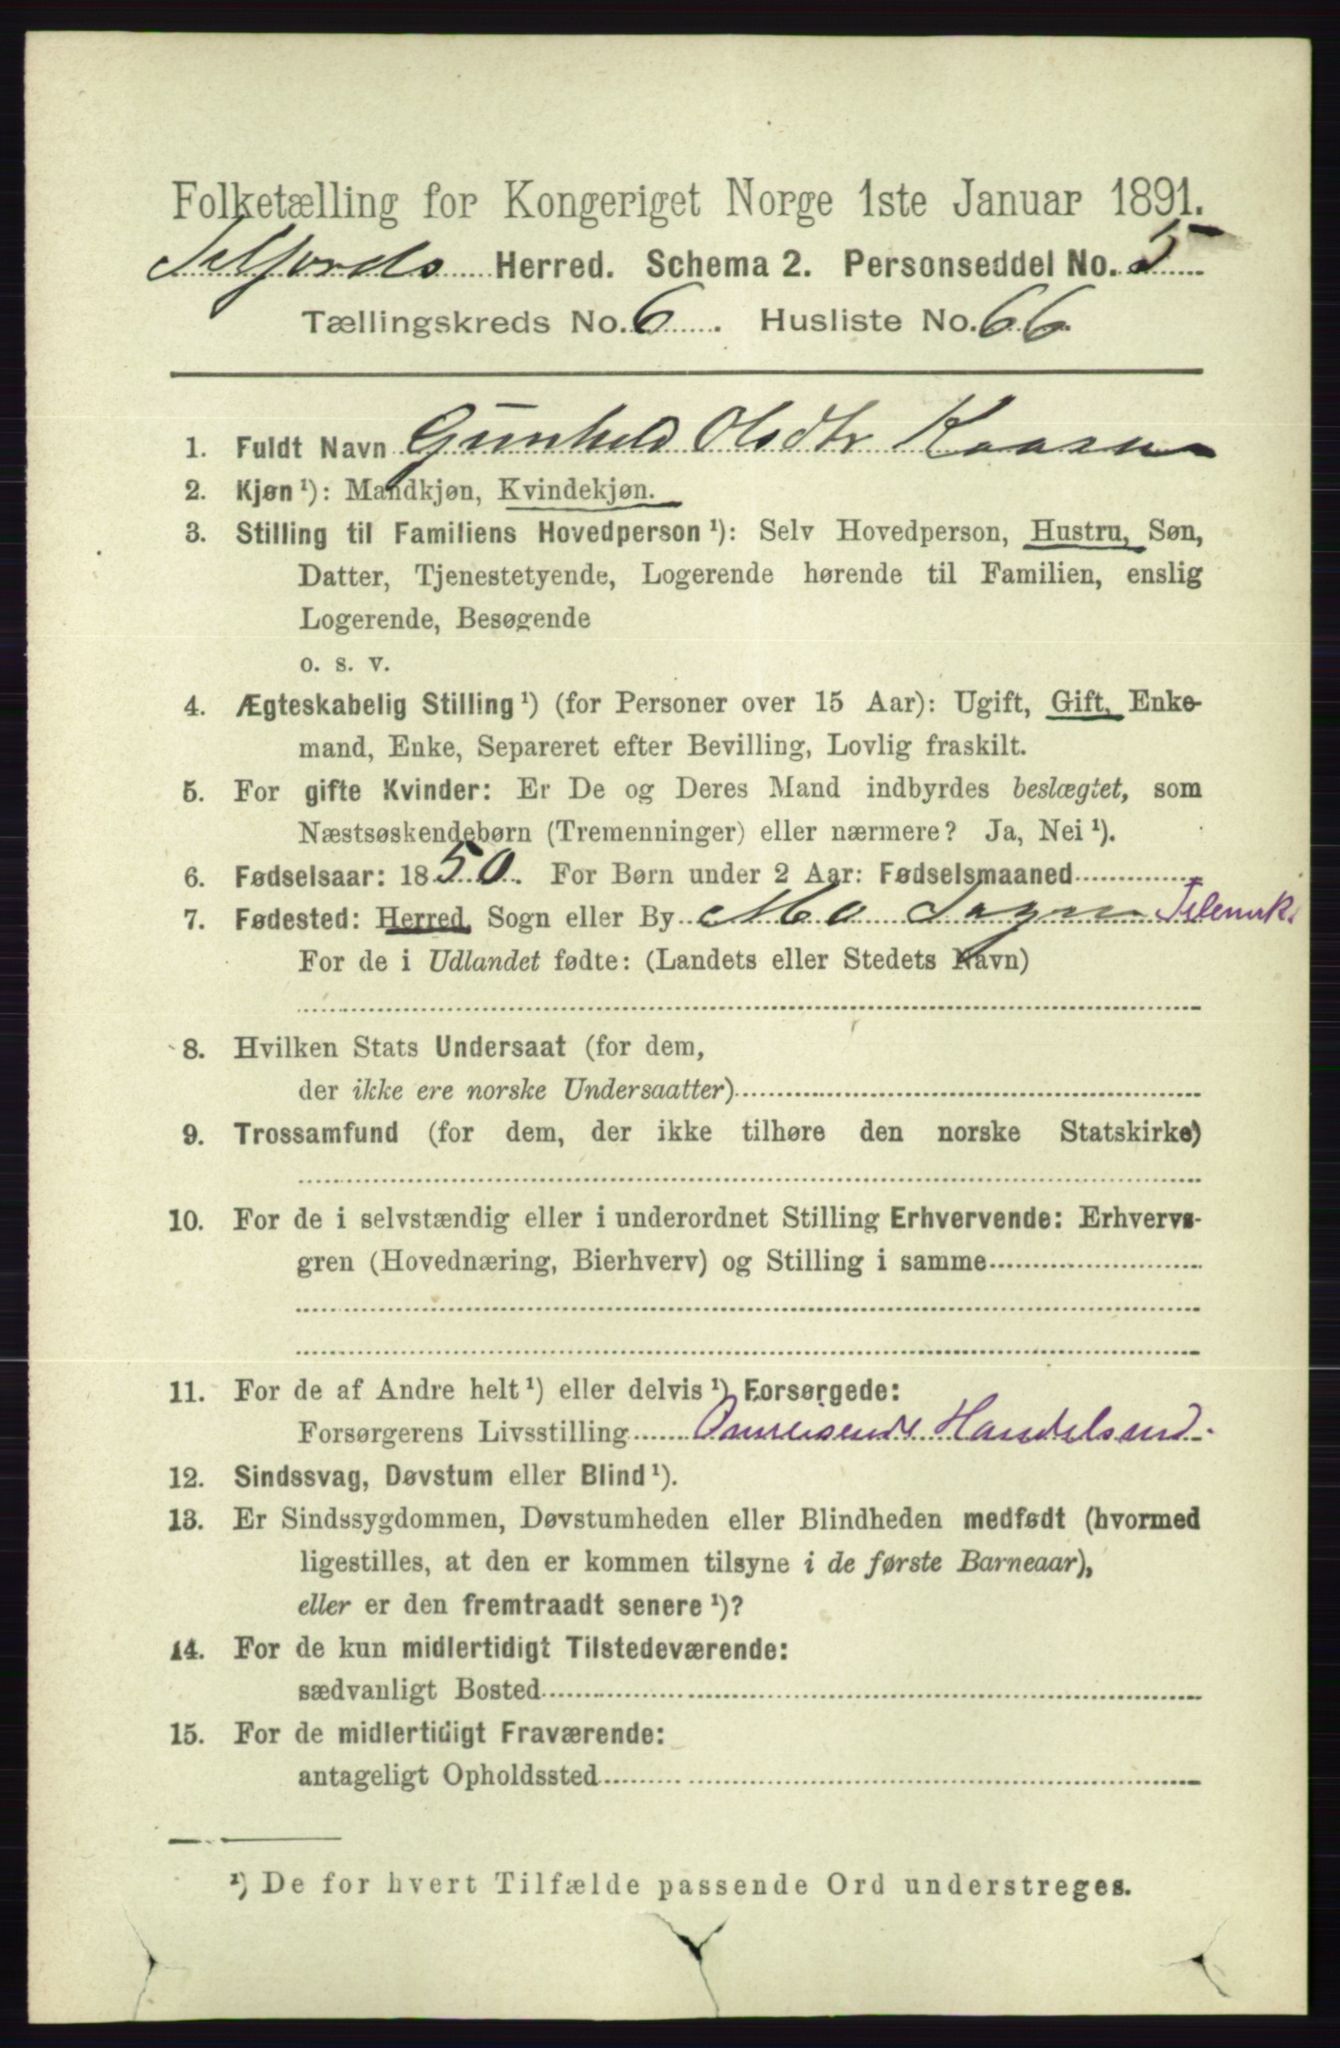 Folketælling for Kongeriget Norge 1ste Januar 1891.
Herred. Schema 2. Personseddel No. 5
Tællingskreds No. 6. Husliste No. 66.
1. Fuldt Navn Gunhild Olsdtr Kaasen
2. Kjøn ¹): Mandkjøn, Kvindekjøn.
3. Stilling til Familiens Hovedperson ¹): Selv Hovedperson, Hustru, Søn,
Datter, Tjenestetyende, Logerende hørende til Familien, enslig
Logerende, Besøgende
o. s. v.
4. Ægteskabelig Stilling ¹) (for Personer over 15 Aar): Ugift, Gift, Enke-
mand, Enke, Separeret efter Bevilling, Lovlig fraskilt.
5. For gifte Kvinder: Er De og Deres Mand indbyrdes beslægtet, som
Næstsøskendebørn (Tremenninger) eller nærmere? Ja, Nei ¹).
6. Fødselsaar: 1850. For Børn under 2 Aar: Fødselsmaaned
7. Fødested: Herred, Sogn eller By Mo Sogn Telemk.
For de i Udlandet fødte: (Landets eller Stedets Navn)
8. Hvilken Stats Undersaat (for dem,
der ikke ere norske Undersaatter)
9. Trossamfund (for dem, der ikke tilhøre den norske Statskirke)
10. For de i selvstændig eller i underordnet Stilling Erhvervende: Erhvervs-
gren (Hovednæring, Bierhverv) og Stilling i samme
11. For de af Andre helt ¹) eller delvis ¹) Forsørgede:
Forsørgerens Livsstilling Omreisende Handelsmd.
12. Sindssvag, Døvstum eller Blind ¹).
13. Er Sindssygdommen, Døvstumheden eller Blindheden medfødt (hvormed
ligestilles, at den er kommen tilsyne i de første Barneaar),
eller er den fremtraadt senere ¹)?
14. For de kun midlertidigt Tilstedeværende:
sædvanligt Bosted
15. For de midlertidigt Fraværende:
antageligt Opholdssted
¹) De for hvert Tilfælde passende Ord understreges.